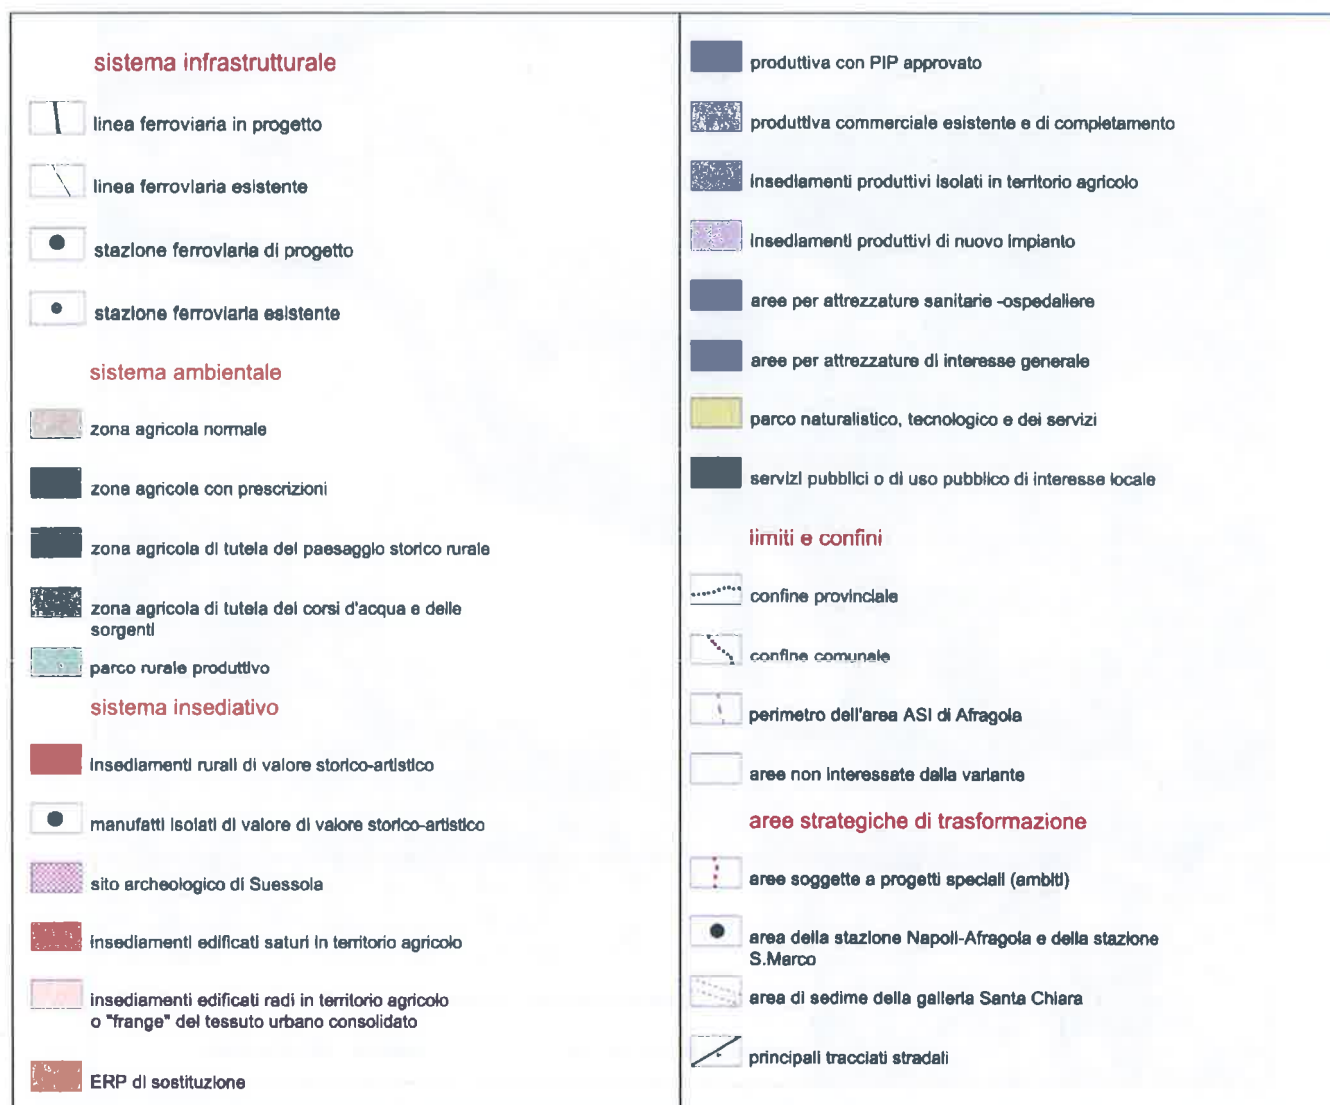 sistema infrastrutturale
linea ferroviaria in progetto
linea ferroviaria esistente
stazione ferroviaria di progetto
stazione ferroviaria esistente
sistema ambientale
zona agricola normale
zona agricola con prescrizioni
zona agricola di tutela del paesaggio storico rurale
zona agricola di tutela dei corsi d'acqua e delle
sorgenti
parco rurale produttivo
sistema insediativo
insediamenti rurali di valore storico-artistico
manufatti isolati di valore di valore storico-artistico
sito archeologico di Suessola
insediamenti edificati saturi in territorio agricolo
insediamenti edificati radi in territorio agricolo
o "frange" del tessuto urbano consolidato
ERP di sostituzione
produttiva con PIP approvato
produttiva commerciale esistente e di completamento
insediamenti produttivi isolati in territorio agricolo
insediamenti produttivi di nuovo impianto
aree per attrezzature sanitarie -ospedaliere
aree per attrezzature di interesse generale
parco naturalistico, tecnologico e dei servizi
servizi pubblici o di uso pubblico di interesse locale
limiti e confini
confine provinciale
confine comunale
perimetro dell'area ASI di Afragola
aree non interessate dalla variante
aree strategiche di trasformazione
aree soggette a progetti speciali (ambiti)
area della stazione Napoli-Afragola e della stazione
S.Marco
area di sedime della galleria Santa Chiara
principali tracciati stradali